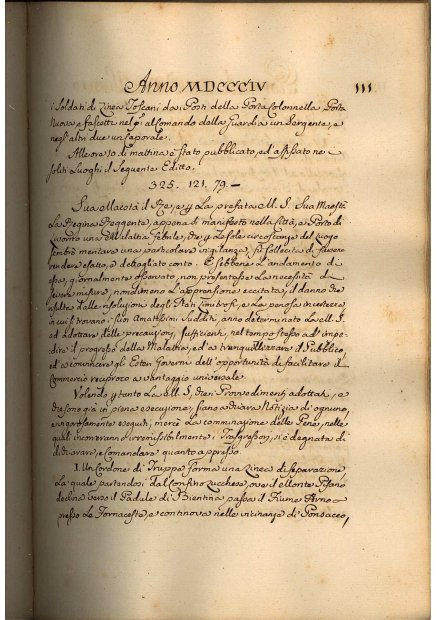 Anno MDCCCIV 111
i Soldati di Linea Toscani da i Posti della Porta Colonnella, Porta
Nuova, e Fascetti nel p: al Comando della Guardia un Sergente, e
negl'altri due un Caporale.
Alle ore 10 di mattina è stato pubblicato, ed affissato ne i
soliti Luoghi il Seguente Editto.
325. 121. 79. —
Sua Maestà il Re, e p. La prefata M. S. Sua Maestà
La Regina Reggente, appena di manifesto nella Città, e Porto di
Livorno una Malattia Febrile, che p. Le sole circostanze del Luogo
sembrò meritare una particolare vigilanza, fu sollecita di farsene
rendere esatto, e dettagliato conto. E sebbene l'andamento di
essa, giornalmente osservato, non presentasse La necessità di
severe misure, nondimeno l'apprensione eccitata, il danno che
risulta dalle risoluzioni degli Stati Limitrofi, e La penosa incertezza
in cui si trovano i suoi Amatissimi Sudditi, anno determinato La M. S.
ad adottare delle precauzioni, sufficienti nel tempo stesso ad impe-
dire il progresso della Malattia, ed a tranquillizzare il Pubblico,
ed a convincere gli Esteri Governi dell'opportunità di facilitare il
Commercio reciproco a vantaggio universale.
Volendo p. tanto La M. S. che i Provvedimenti adottati, e
che sono già in piena esecuzione, siano a chiara Notizia di ognuno,
e rigorosamente eseguiti, mercè La comminazione delle Pene, nelle
quali incorreranno irremissibilmente i Trasgressori, si è degnata di
dichiarare, e Comandare quanto appresso.
I. Un Cordone di Truppe forma una Linea di separazione,
La quale partendosi dal Confino Lucchese, ove il Monte Pisano
declina verso il Padule di Bientina passa il Fiume Arno a-
presso Le Fornacette, e continova nelle vicinanze di Ponsacco,